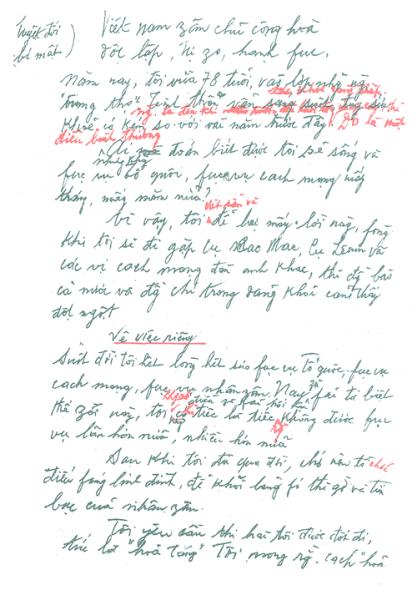 Tuyệt đối
bí mật)
Việt nam zân chủ cộng hoà
độc lập, tự zo, hạnh fúc.
Năm nay, tôi vừa 78 tuổi, vào lớp những
"trung thọ". Tinh thần vẫn sáng suốt, tuy sức
khoẻ có kém so với vài năm trước đây. Đó là một
điều bình thường
Ai đoán biết được tôi sẽ sống và
fục vụ tổ quốc, fục vụ cách mạng mấy
tháng, mấy năm nữa?
Vì vậy, tôi viết sẵn và để lại mấy lời này, fòng
khi tôi sẽ đi gặp Cụ Mác, Cụ Lênin và
các vị cách mạng đàn anh khác, thì đg bào
cả nước và đg chí trong đảng khỏi cảm thấy
đột ngột.
Về việc riêng
Suốt đời tôi hết lòng hết sức fục vụ Tổ quốc, fục vụ
cách mạng, fục vụ nhân zân. Nay zù fải từ biệt
thế zới này, tôi chỉ tiếc là tiếc không được fục
vụ lâu hơn nữa, nhiều hơn nữa
Sau khi tôi đã qua đời, chớ nên tổ chức
điếu fúng linh đình, để khỏi lãng fí thì giờ và tiền
bạc của nhân zân.
Tôi yêu cầu thi hài tôi được đốt đi,
tức là "hoả táng". Tôi mong rằng cách "hoả